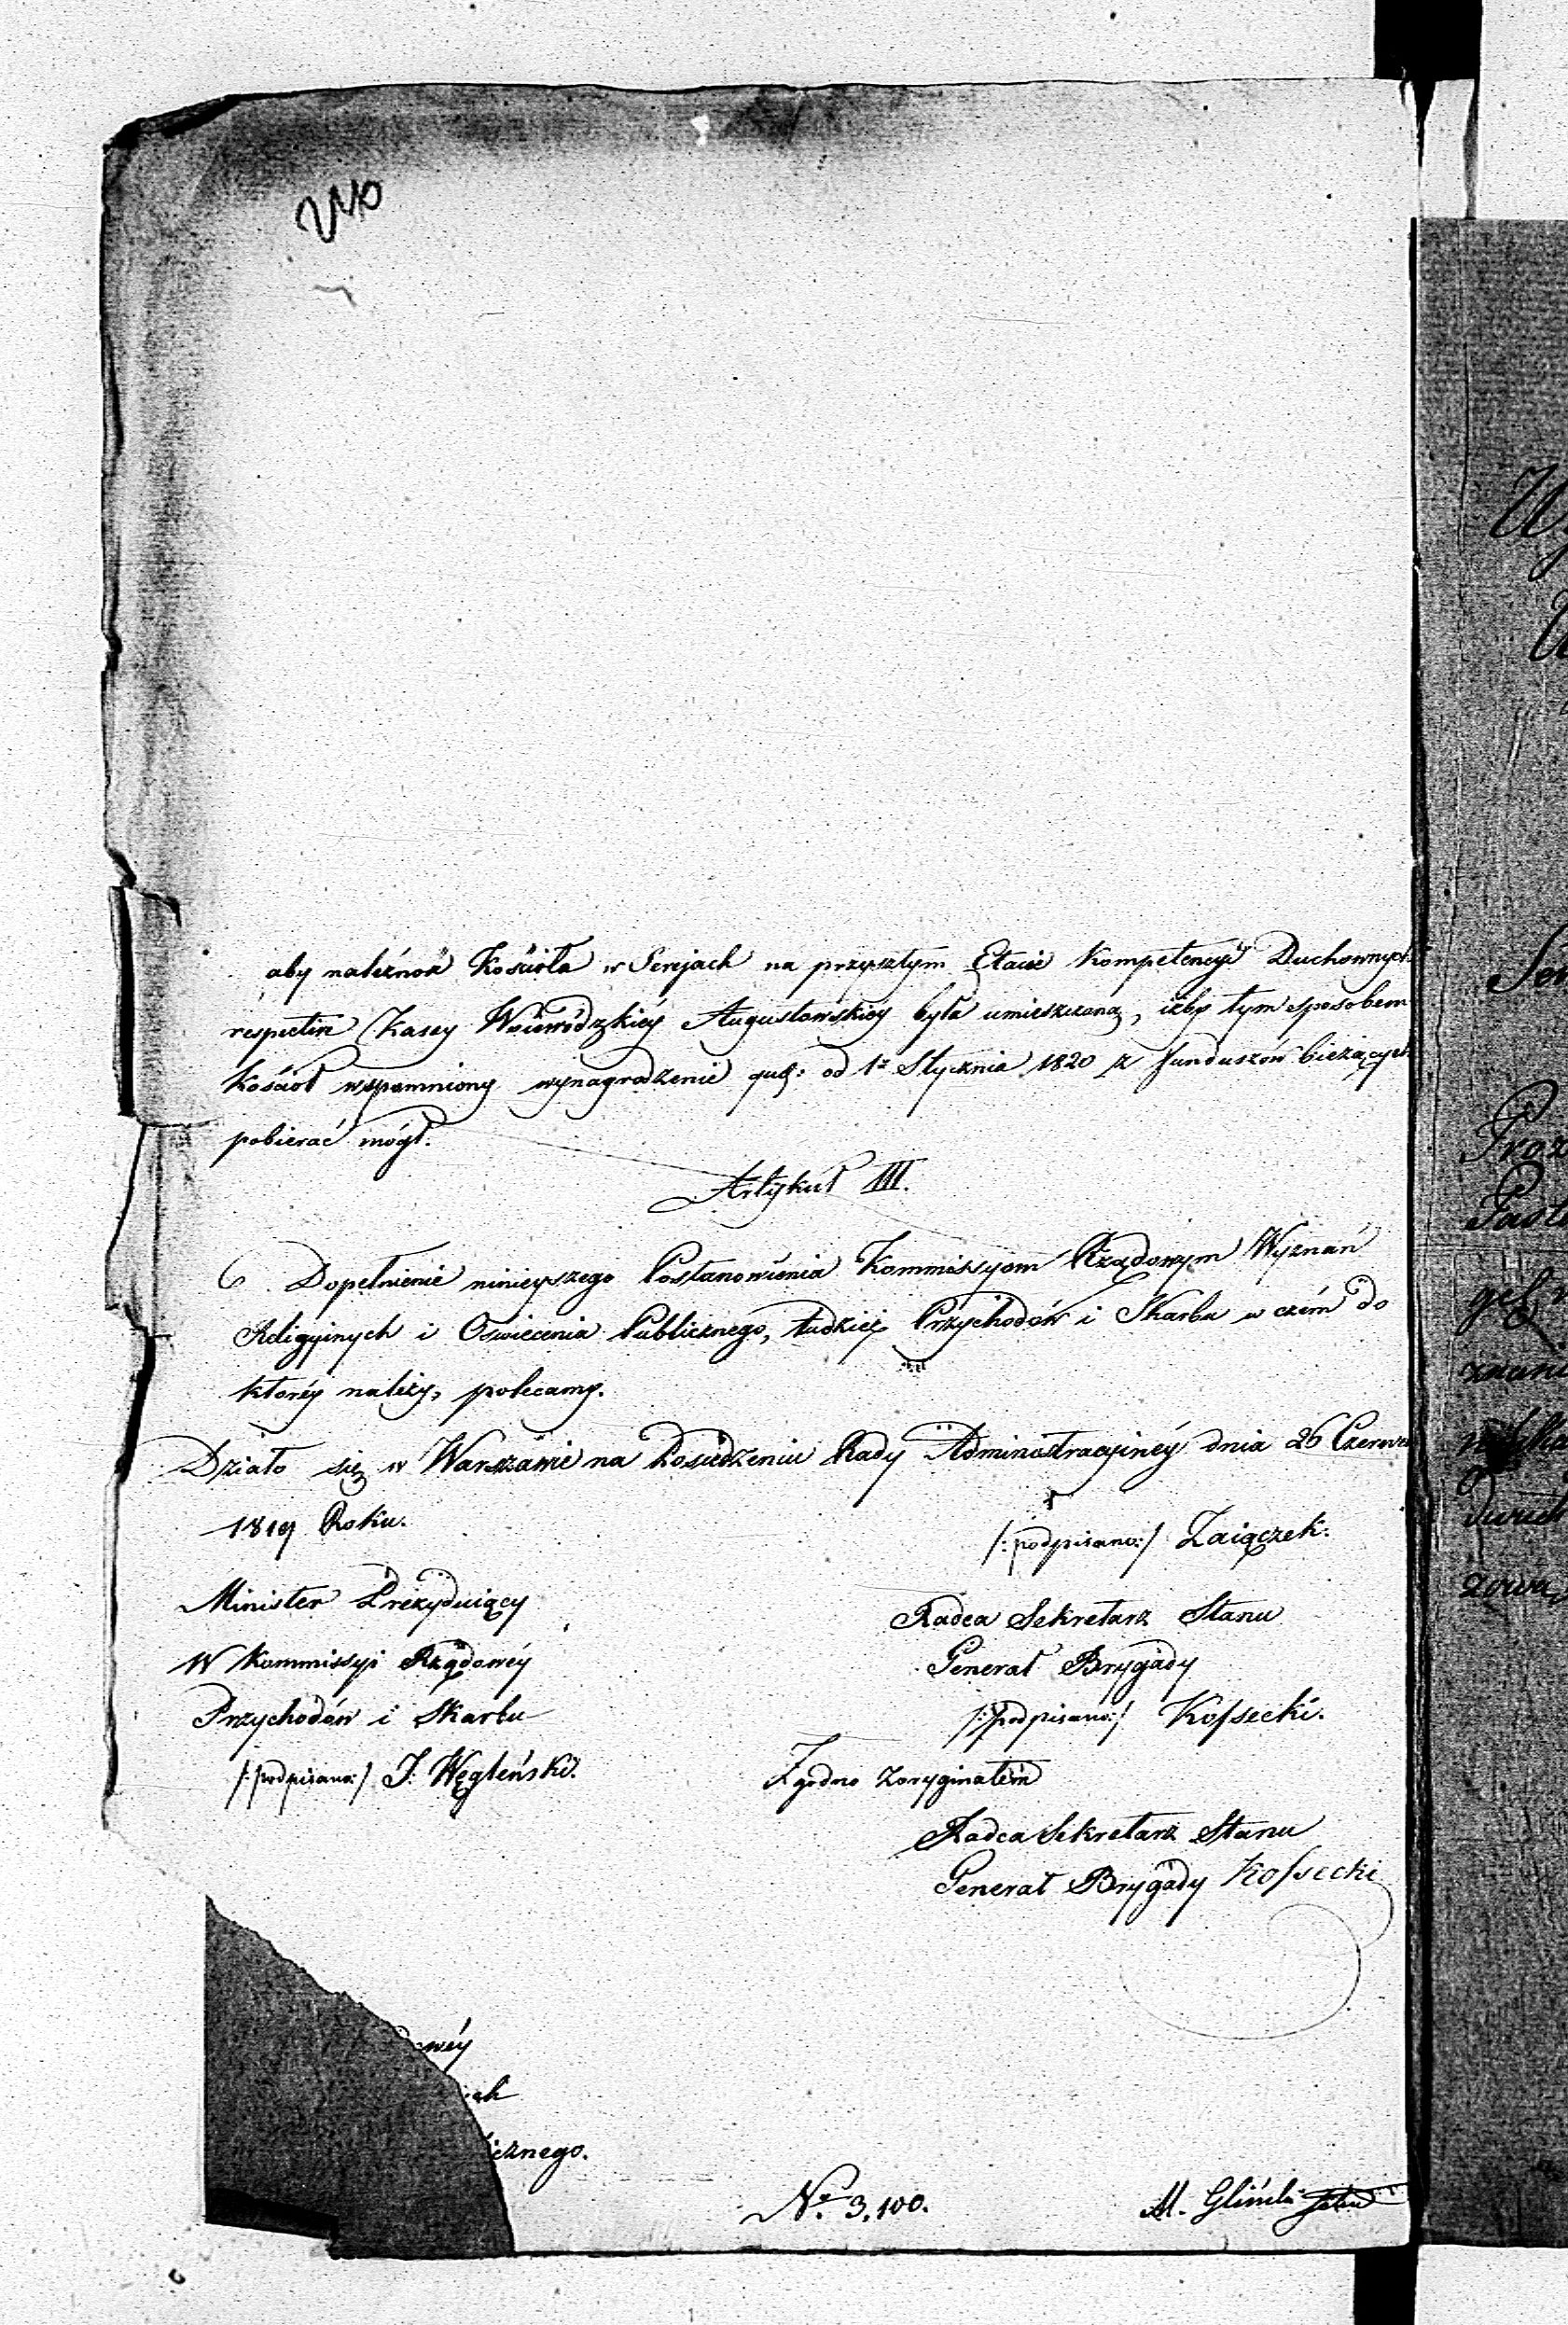 240
aby należność Kościoła w Serejach na przyszłym Etacie Kompetencyi Duchownych
respective Kassy Woiewódzkiéy Augustowskiéy była umieszczoną, iżby tym sposobem
Kościoł wspomniony wynagrodzenie od 1º Stycznia 1820 z funduszów bieżących
pobierać mógł.
Artykuł III.
Dopełnienie ninieyszego Postanowienia Kommissyom Rządowym Wyznań
Religyinych i Oświecenia Publicznego, tudzież Przychodów i Skarbu w czém do
któréy należy, polecamy.
Działo się w Warszawie na Posiedzeniu Rady Administracyinéy dnia 26 Czerwca
1819 Roku.
/:podpisano:/ Zaiączek.
Minister Prezyduiący
w Kommissyi Rządowéy
Przychodów i Skarbu
/:podpisano:/ J. Węgleński.
Radca Sekretarz Stanu
Generał Brygady
/:podpisano:/ Kossecki.
Zgodno z oryginałem
Radca Sekretarz Stanu
Generał Brygady Kossecki
owéy
ich
icznego.
No. 3,100.
M. Gliński